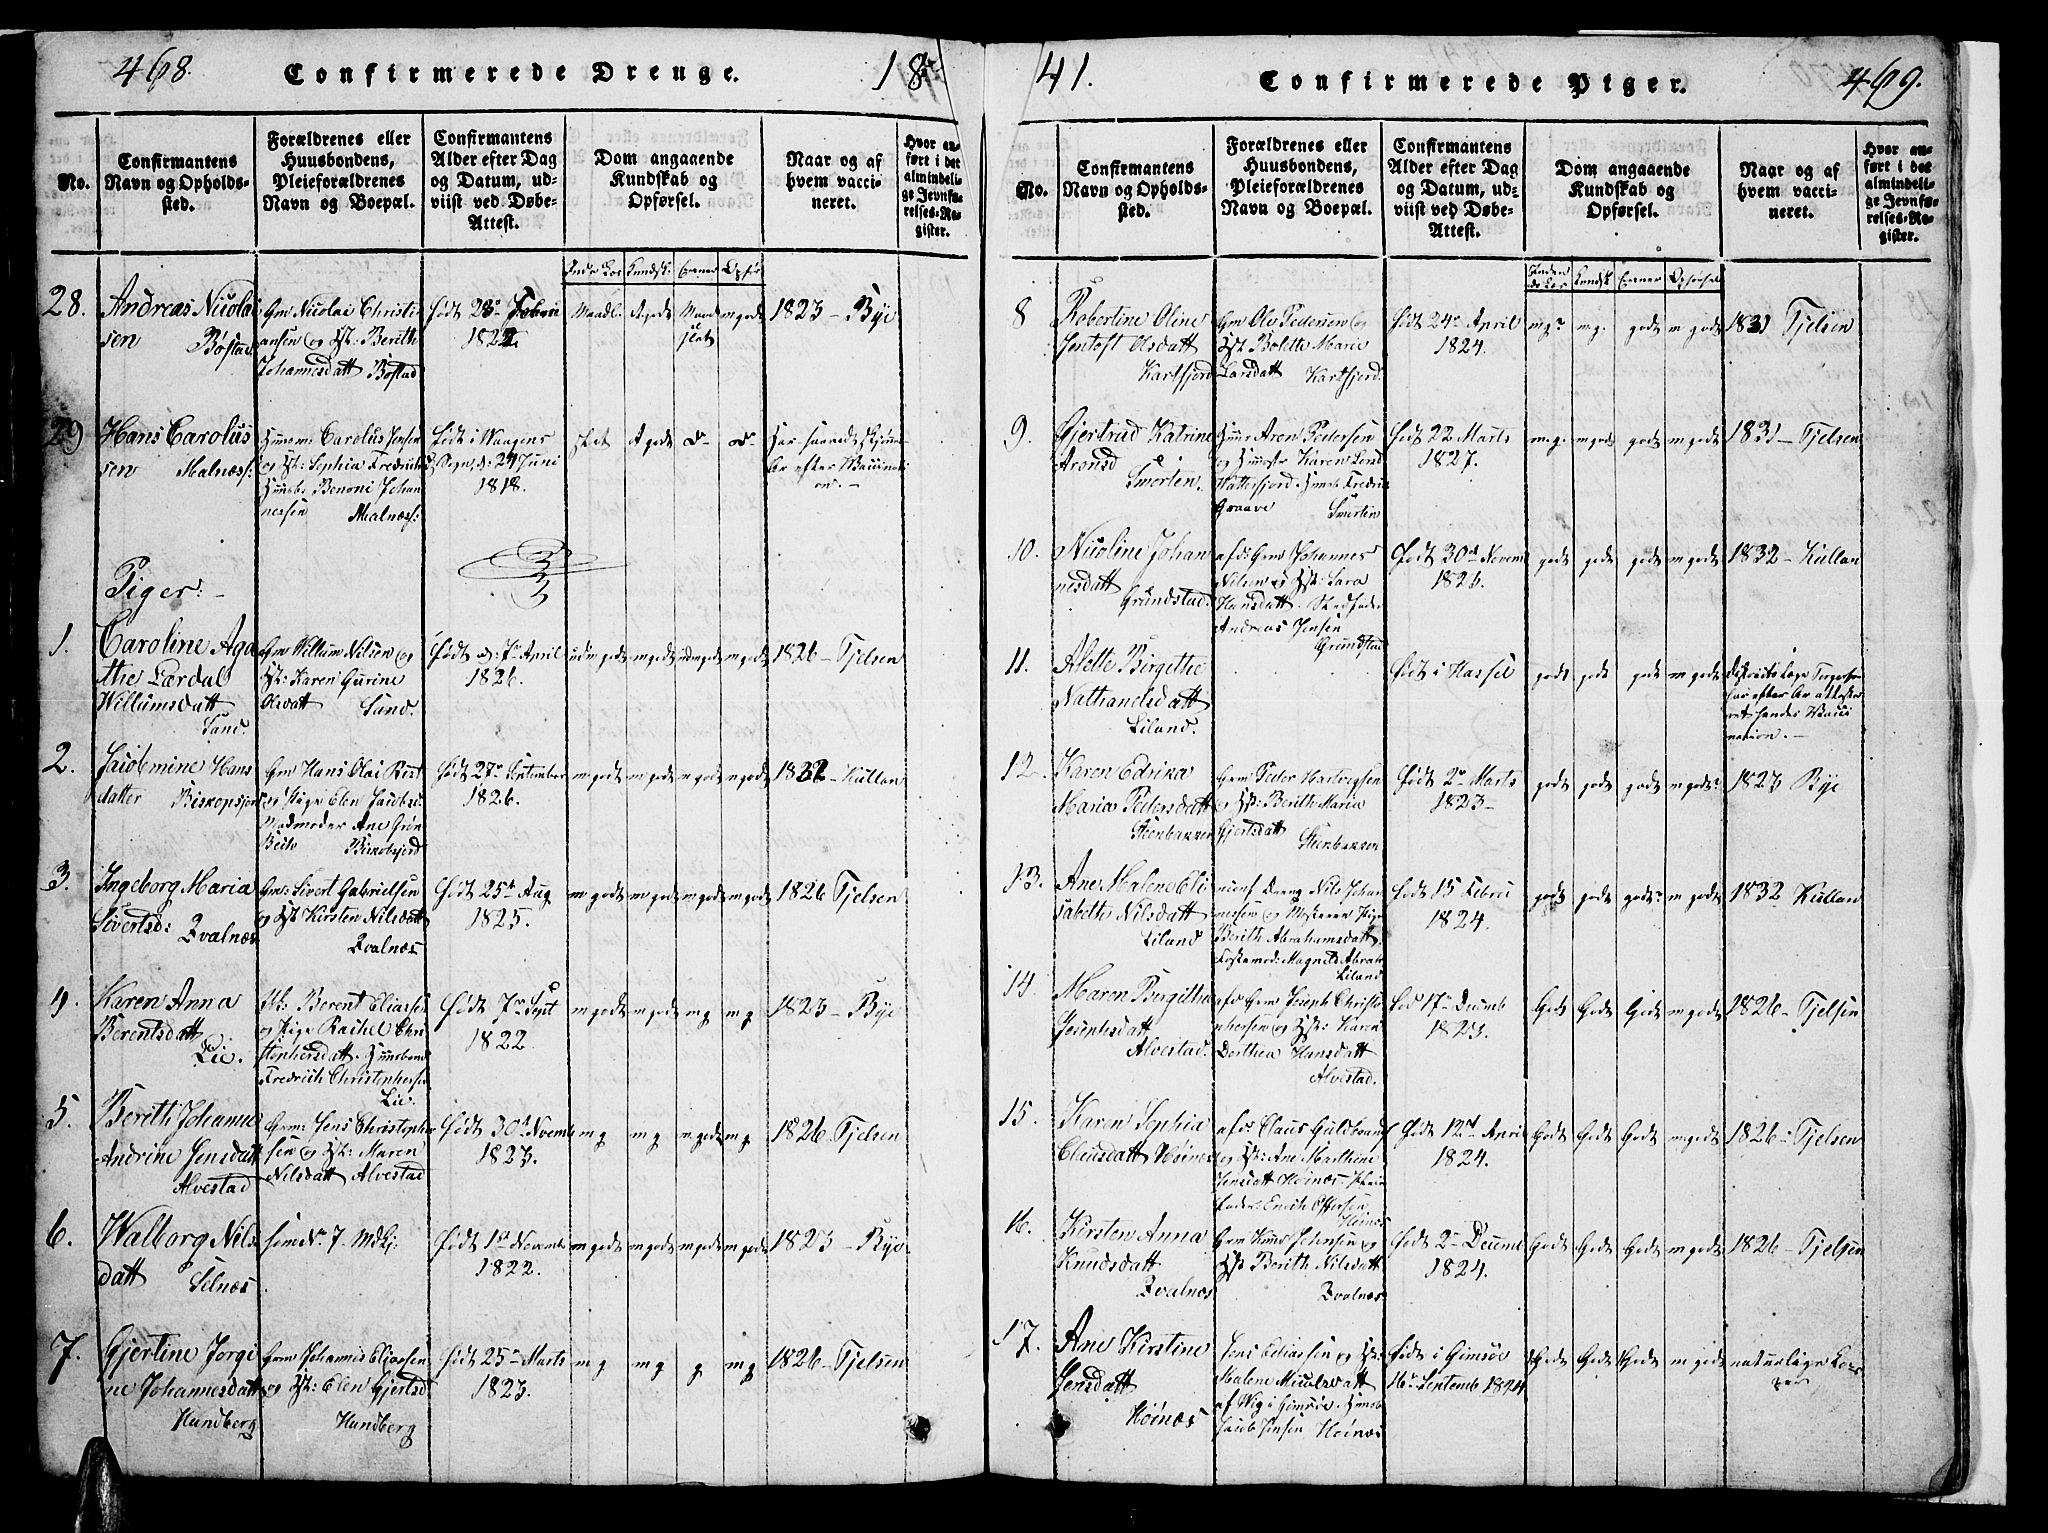 468.
Confirmerede Drenge.
18
No.
Confirmantens Navn og Opholdssted.
Forældrenes eller Huusbondens, Pleieforældrenes Navn og Boepæl.
Confirmantens Alder efter Dag og Datum, udviist ved Døbe-Attest.
Dom angaaende Kundskab og Opførsel.
Naar og af hvem vaccineret.
Hvor anført i det almindelige Jevnførelses-Register.
28.
Andreas Nicolai
sen Bostad
Gm Nicolai Christi
ansen og Hst: Berith
Johannesdatt Bostad
Født 28de Febru
1822
Maadl. A gode m gode
1823 - Bye
29
Hans Carolus
sen Malnæs:
Carolus Jensen
og Hst: Sophia Fredriks
Huusb: Benoni Johan
nessen Malnæs:
Født i Waagens
Sogn, d: 24 Juni
1818.
slet A gode do do
Piger:
1.
Caroline Aga
the Lærdal
Willumsdatt
Sand.
Gm Willum Nilsen og
Hst: Karen Gurine
Olsdatt Sand.
Født d: 7de April
1826.
udm gode m gode udm gode m gode
1826 - Tjelsen
2.
Jacobmine Hans
datter Biskopsfjord
Gm Hans Olai
og Pige Elen Jacobsd:
Madmoder Ane Grøn
Bech
Født 27de September
1826.
m gode m gode m gode m gode
1832 - Kullan
3.
Ingeborg Maria
Sivertsd: Qvalnæs
Gm: Sivert Gabrielsen
og Hst Kirsten Nilsdatt
Qvalnæs
Født 25de Aug
1825.
m gode m gode m gode m gode
1826 Tjelsen
4.
Karen Anna
Berentsdatt
Lie.
Berent Eliassen
og Pige Rachel Chri
stophersdatt. Huusbond
Fredrich Christophersen
Lie.
Født 7de Sept
1822
m gode m gode m g m g
1823 - Bye
5.
Berith Johanne
Andrine Jensdatt
Alvestad
Grm: Jens Christopher
sen og Hst: Maren
Nilsdatt Alvestad
Født 30d Novemb
1823.
m g m g m gode m g
1826. Tjelsen
6.
Walborg Nils
datt Selnæs
som No 7. Mdkj:
Født 1de Novemb
1822.
m gode m gode m gode m gode
1823 - Bye
7.
Gjertine Jorgi
ne Johannesdatt
Hundberg
Grm Johannes Eliassen
og Hst: Elen Gjertsd
Hundberg
Født 25de Marts
1823.
m g m g g m g
1826 - Tjelsen
41.
Confirmerede Piger.
469.
No.
Confirmantens Navn og Opholdssted.
Forældrenes eller Huusbondens, Pleieforældrenes Navn og Boepæl.
Confirmantens Alder efter Dag og Datum, udviist ved Døbe-Attest.
Dom angaaende Kundskab og Opførsel.
Naar og af hvem vaccineret.
Hvor anført i det almindelige Jevnførelses-Register.
8
Robertine Oline
Jentoft Olsdatt
Karlfjord
Gm Ole Pedersen og
Hst Bolette Marie
Larsdatt Karlfjord.
Født 24de April
1824.
m g. m g. gode m gode
1831 Tjelsen
9.
Gjertrud Katrine
Aronsd
Smorten.
Huusm Aron Pedersen
og Karen Larsd
Fredrik
Graave Smorten
Født 22 Marts
1827.
m. g. m gode gode m gode
1831 - Tjelsen
10.
Nicoline Johan
nesdatt
Grundstad.
afdø: Grm Johannes
Nilsen og Hst: Sara
Hansdatt. Stedfader
Andreas Jensen
Grundstad
Født 30d Novemb
1823.
gode gode gode m gode
1832 - Kullan
11.
Alette Birgithe
Nathanelsdatt
Liland.
Født i Hassel
gode gode gode m gode
12.
Karen Edrika
Maria Pedersdatt
Steenbakken
Grm Peder Hartvigsen
og Hst: Berith Maria
Gjertsdatt
Steenbakken
Født 2de Marts
1823 -
gode gode gode m gode
1823 Bye
13.
Ane Malene Eli
sabeth Nilsdatt
Liland
Dreng Nils Johan
nessen og Pige
Berith Abrahamsdatt.
Fostermod: Magnild Abrah
Liland
Født 15 Febru
1824.
gode gode gode m gode
1832 Kullan
14.
Maren Birgithe
Josephsdatt
Alvestad.
afdø Grm Joseph Christo
phersen og Hst: Karen
Dorthea Hansdatt
Alvestad.
Fød 17de Decemb
1823.
Gode Gode Gode m gode
1826 - Tjelsen
15.
Karen Sophia
Clausdatt Høinæs
afdø: Claus Guldbrand
og Hst: Ane Marthine
Jensdatt Høinæs Pleie
fader: Enoch Offersen
Høinæs
Født 12te April
1824.
Gode Gode Gode m gode
1826 - Tjelsen
16.
Kirsten Anna
Knudsdatt
Qvalnæs
Grm Knud Johnsen og
Hst Berith Nilsdatt
Qvalnæs
Født 2de Decemb
1824.
Gode Gode Gode m gode
1826 - Tjelsen
17.
Ane Kirstine
Jensdatt
Høinæs
Jens Eliassen og Hst:
Malene Nicolsdatt
af Wig i Gimsøe. Huusb
Jacob Jensen Høinæs
Født i Gimsøe
16de Septemb 1824
Gode Gode Gode m gode
naturlige Kopper